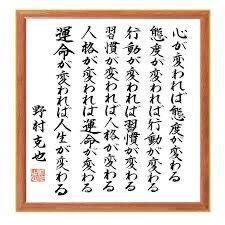 心が変われば態度が変わる
態度が変われば行動が変わる
行動が変われば習慣が変わる
習慣が変われば人格が変わる
人格が変われば運命が変わる
運命が変われば人生が変わる
野村克也